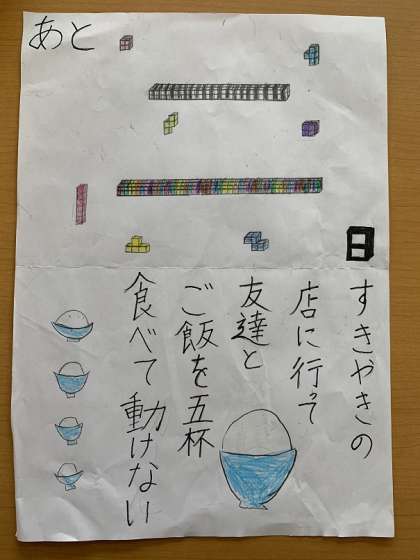 あと
二
日
すきやきの
店に行って
友達と
ご飯を五杯
食べて動けない